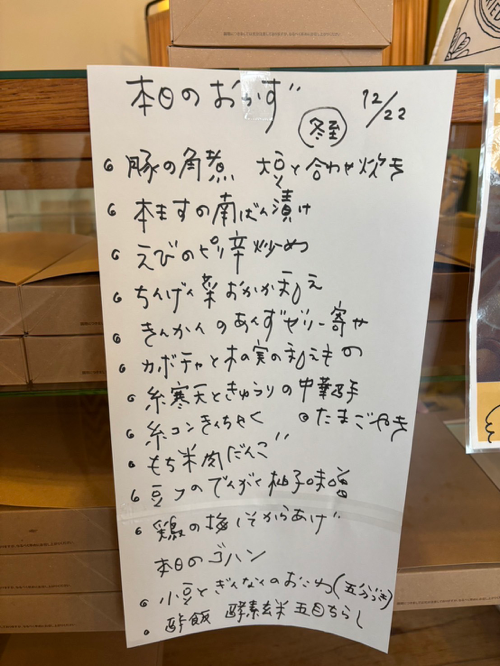 本日のおかず 12/22
冬至
豚の角煮 大豆と合わせ炊き
本ますの南ばん漬け
えびのピリ辛炒め
ちんげん菜おかか和え
きんかんのあんずゼリー寄せ
カボチャと木の実の和えもの
糸寒天ときゅうりの中華
糸コンきんちゃく たまごやき
もち米肉だんご
豆フのでんがく柚子味噌
鶏の梅しそからあげ
本日のゴハン
小豆とぎんなんのおこわ(五分づき)
酢飯 酵素玄米 五目ちらし